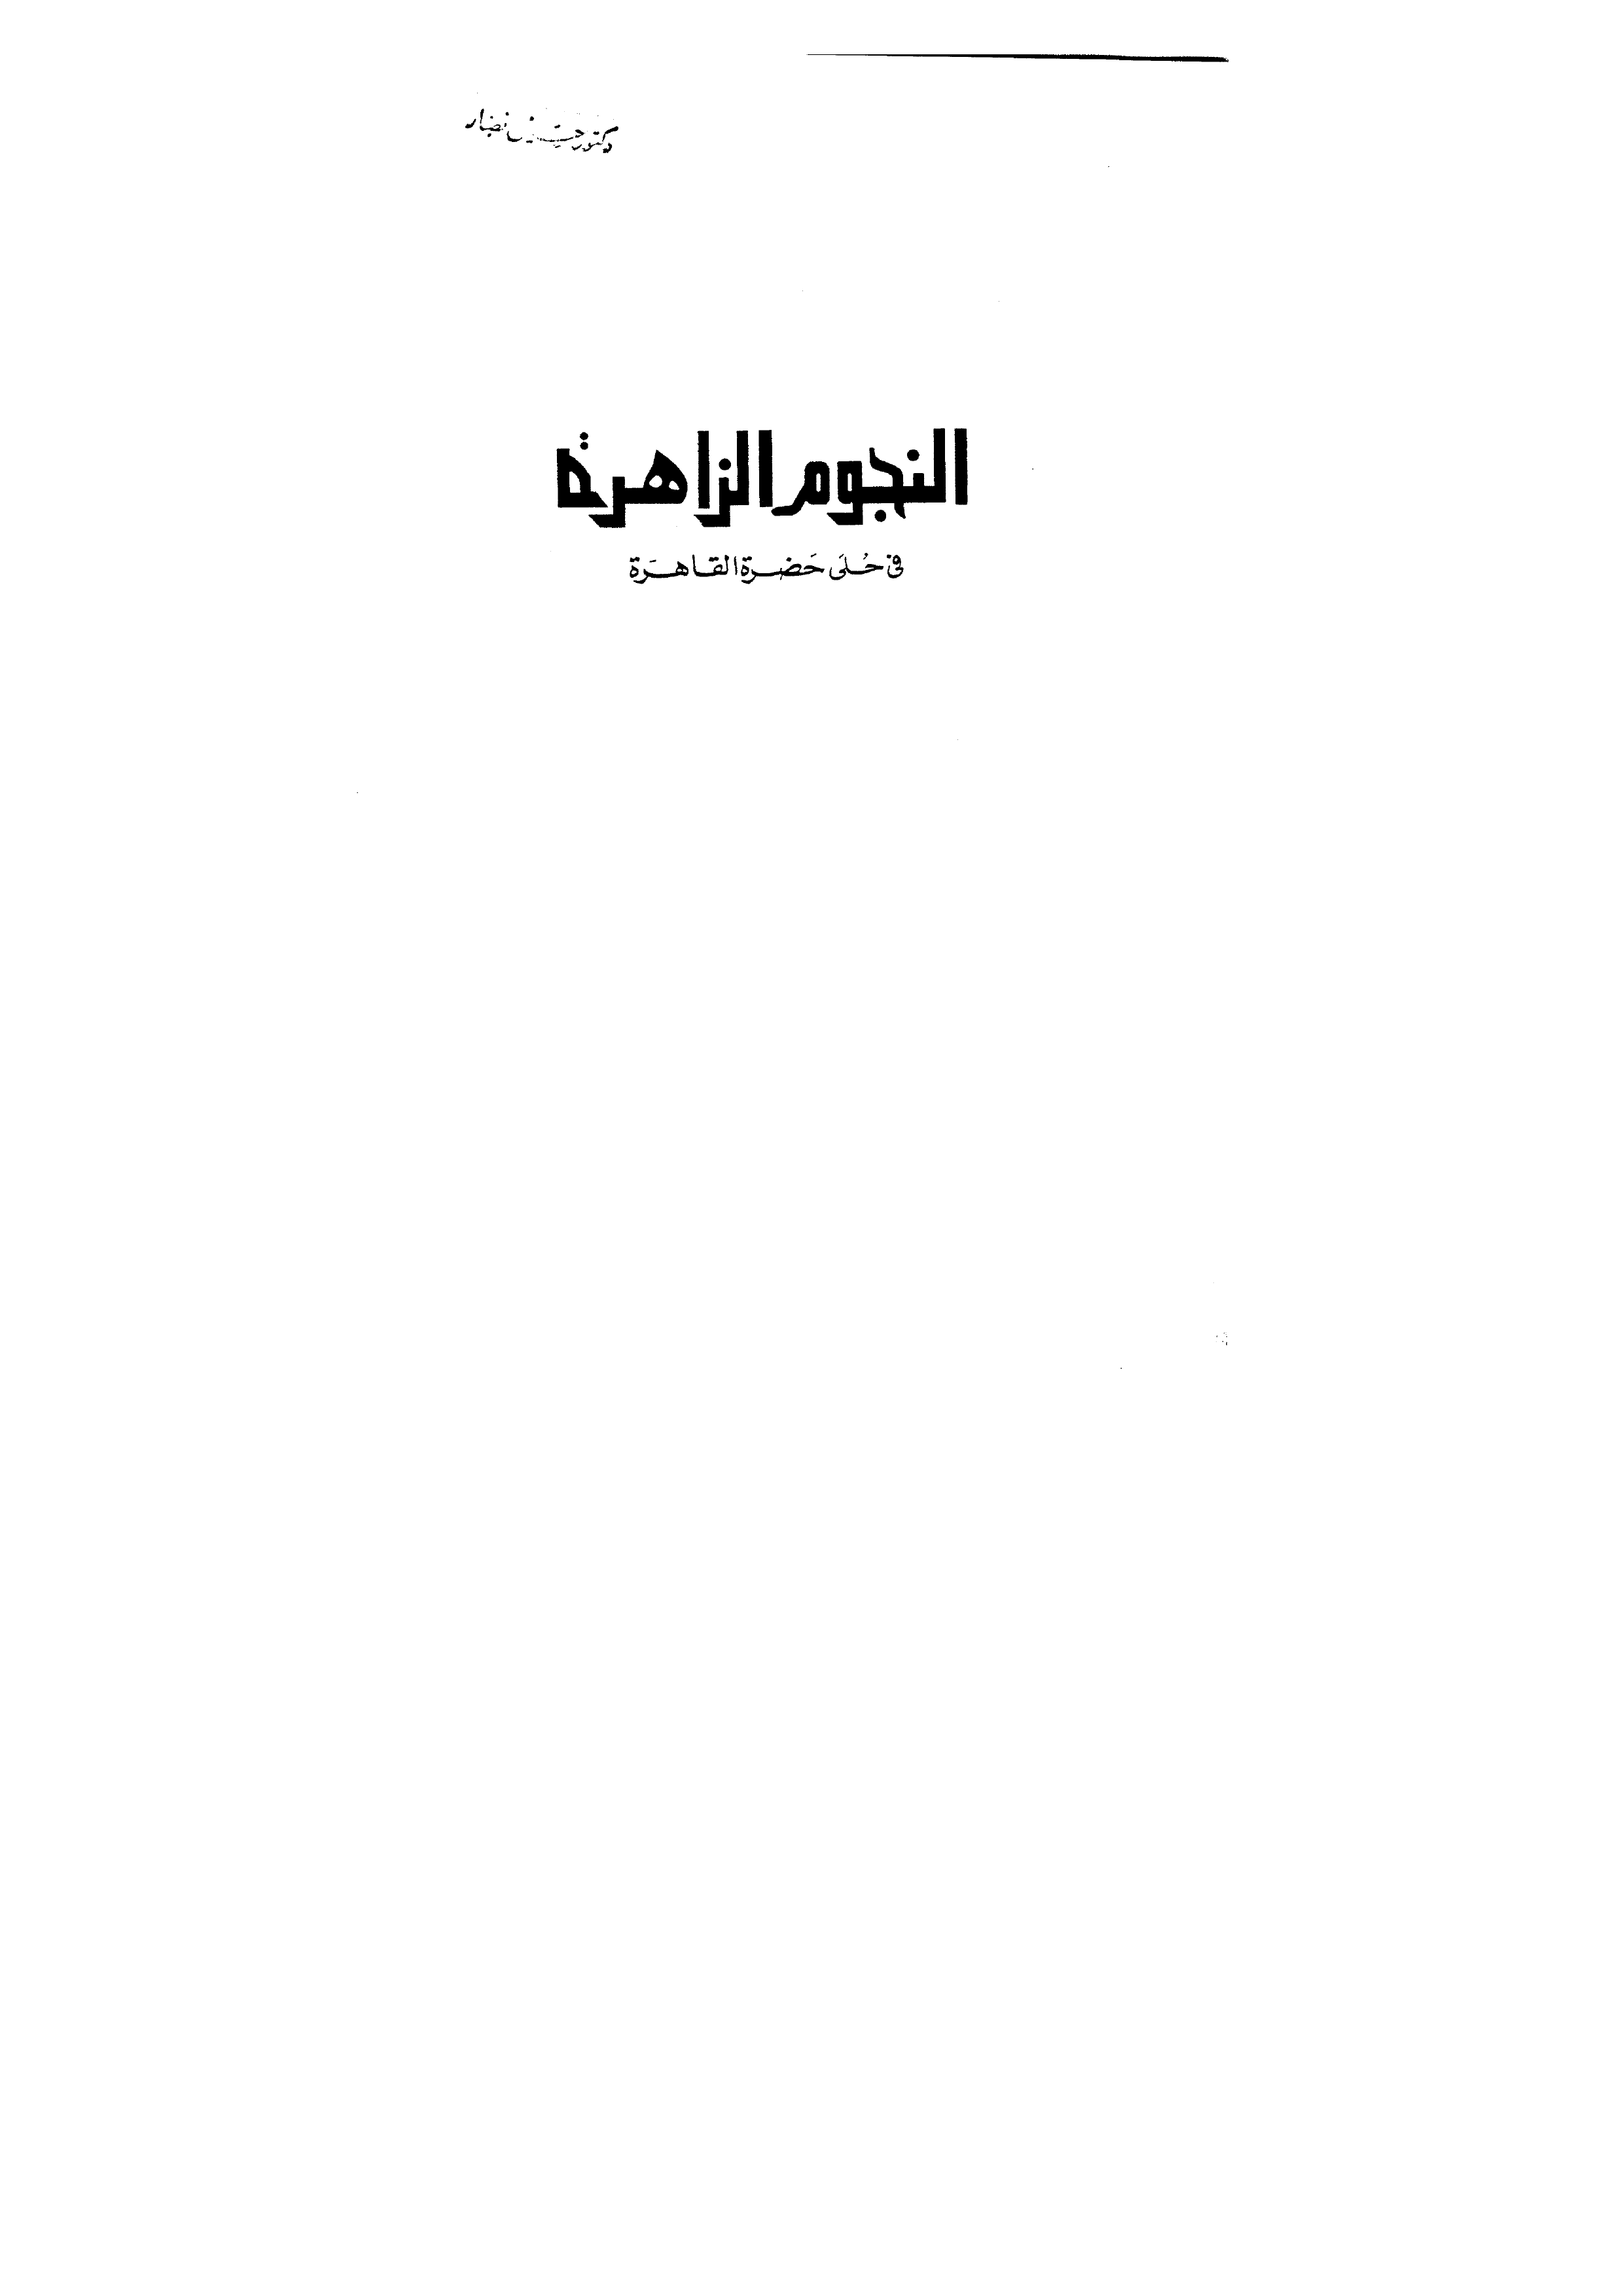 دكتور حسين نصار
النجوم الزاهرة
في حُلَى حَضرة القاهَرة